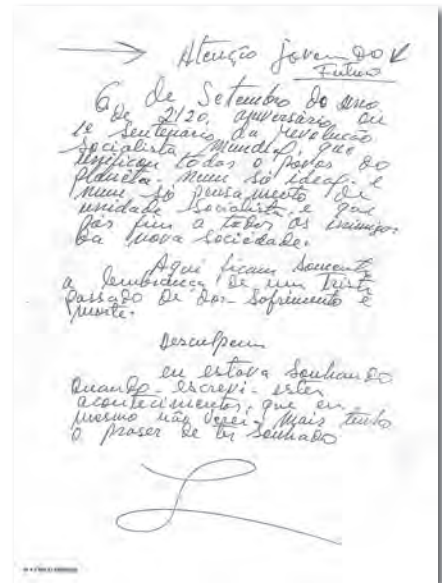 Atenção jovem do
Futuro
6 de Setembro do ano
de 2120, aniversário ou
1º Sentenário da revolução
Socialista Mundial, que
unificou todos o povos do
planeta num só ideal e
num só pensamento de
unidade Socialista, e que
pôs fim a todos os inimigos
da nova sociedade.
Aqui ficam somente
a lembrança de um triste
passado de dor - Sofrimento e
morte.
Desculpem
eu estava sonhando
quando - escrevi - estes
acontecimentos, que eu
mesmo não verei. mais tenho
o praser de ter sonhado